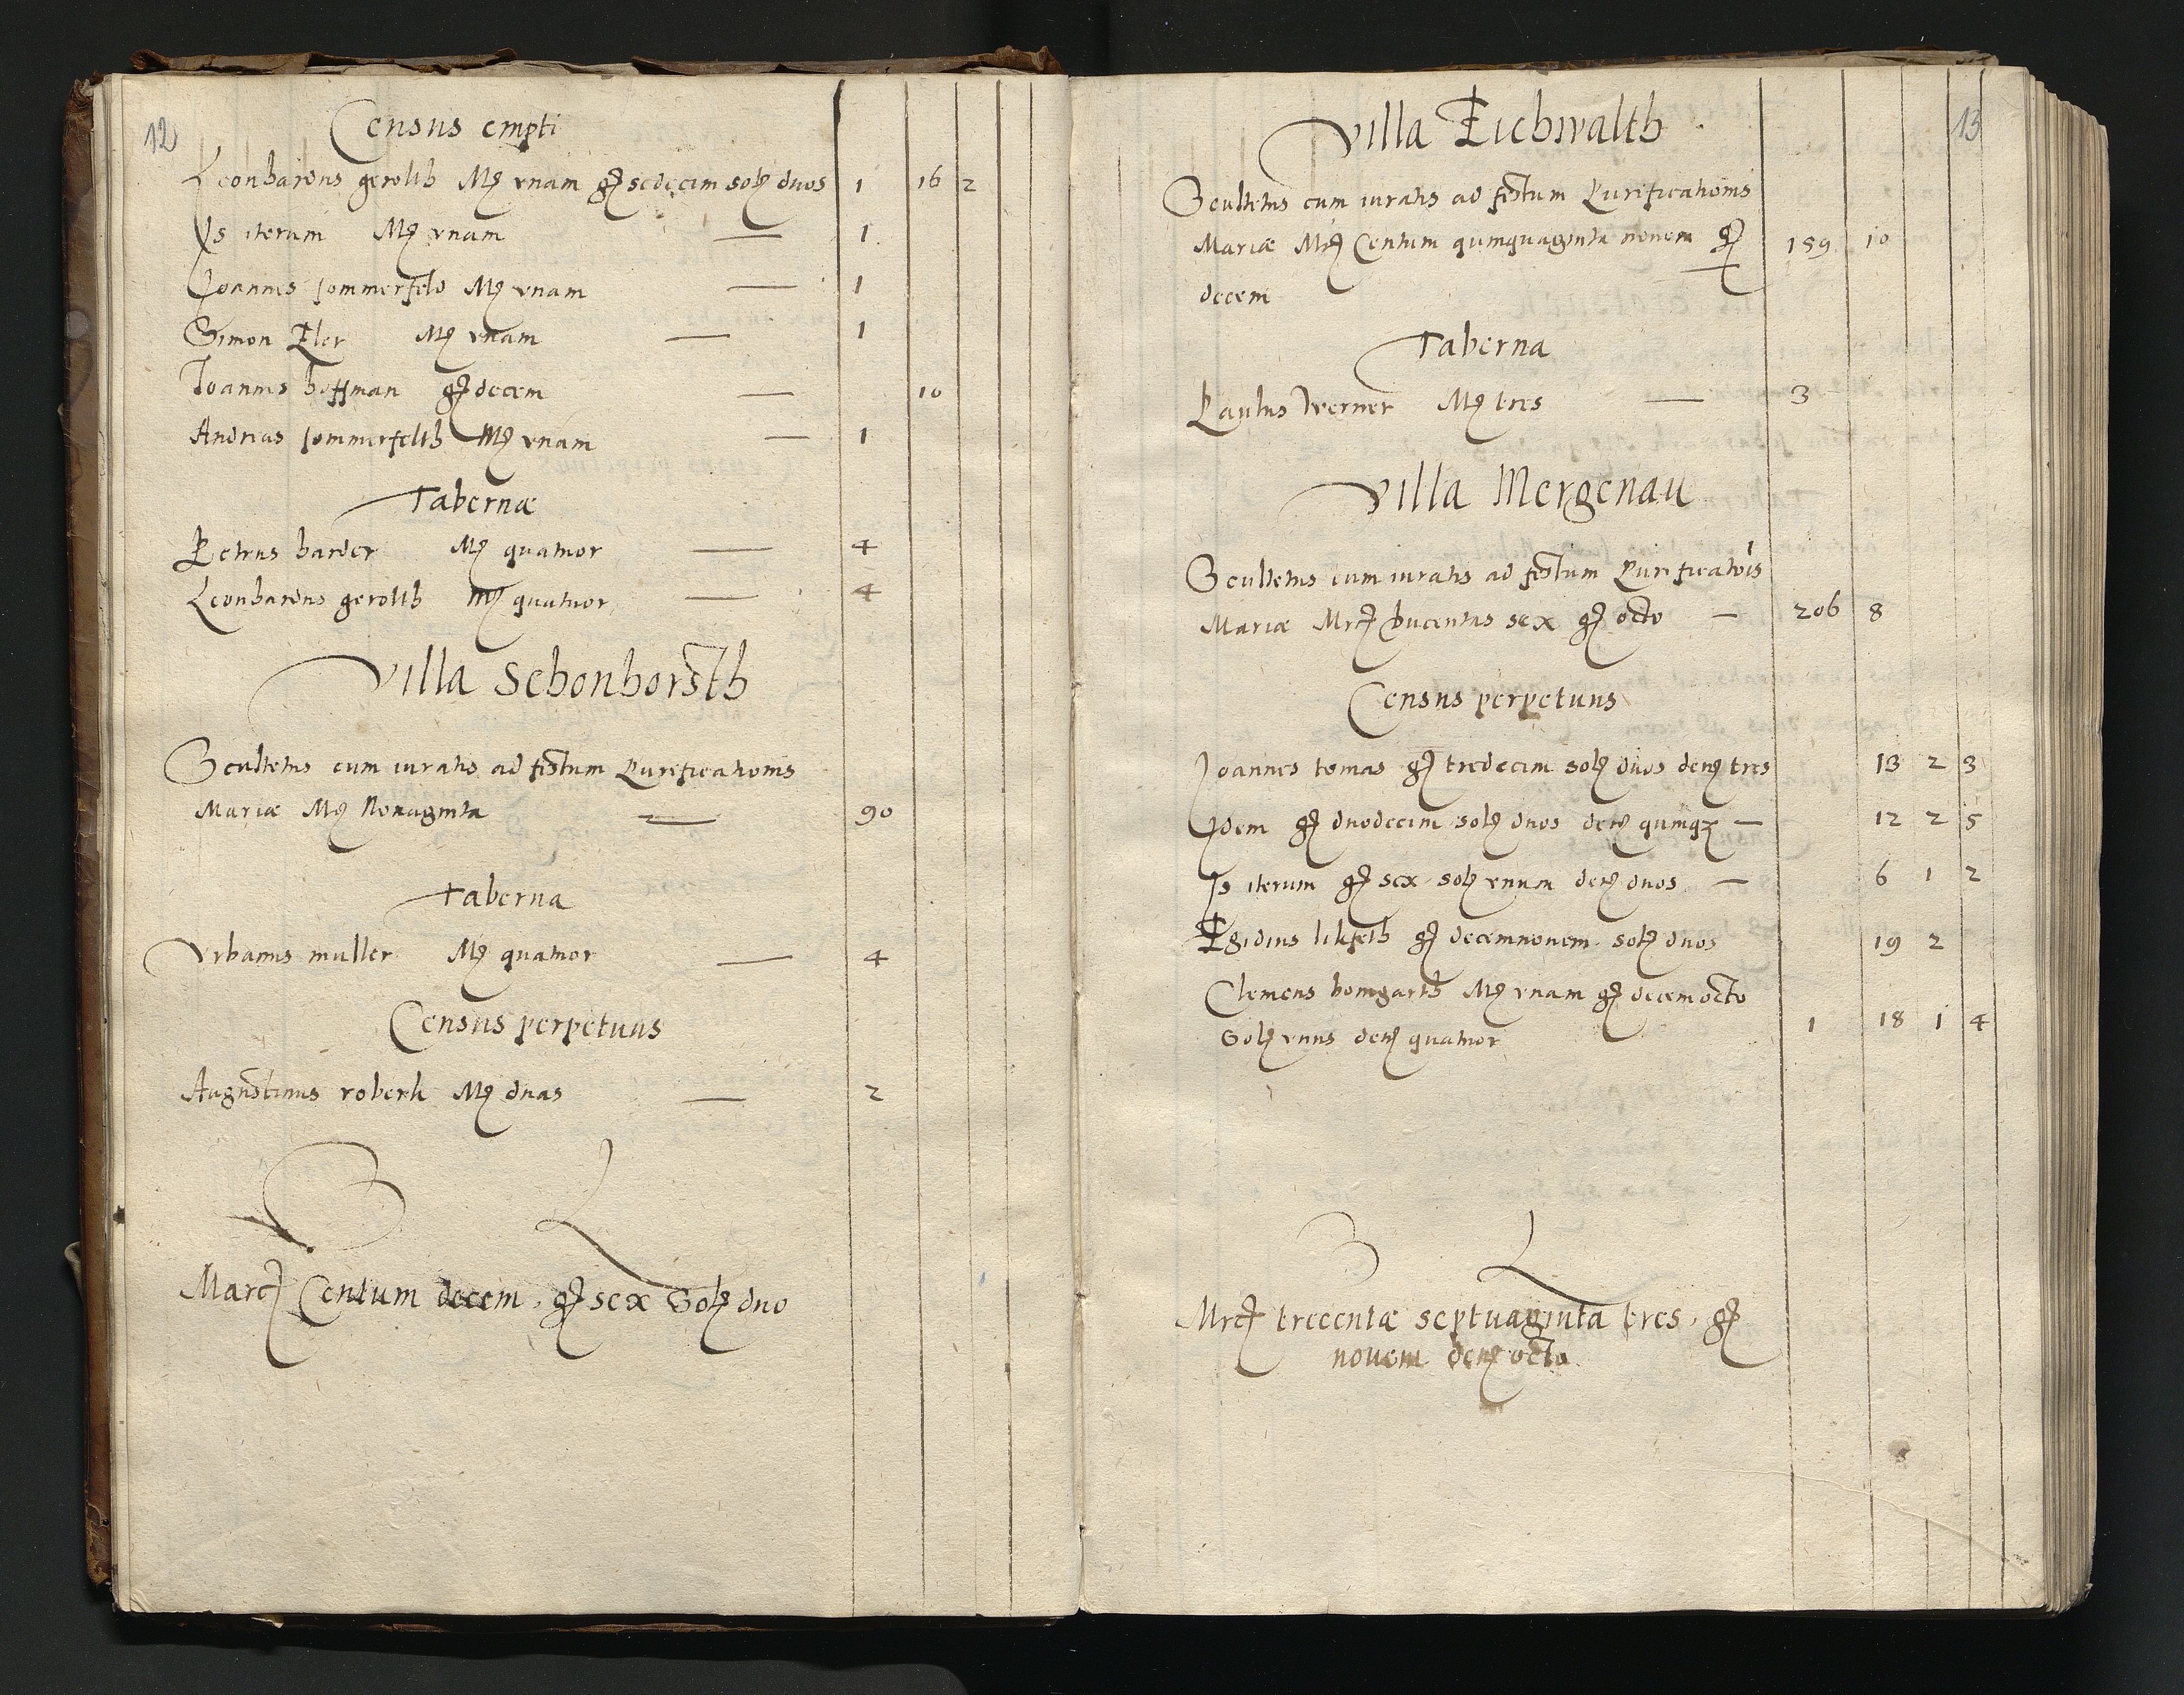 12
Census empti
Leonhardus gerolth Mrc vnam gr sedecim sol duos 1 16 2
Is iterum Mrc vnam — 1
Joannes sommerfeld Mrc vnam — 1
Simon Eler Mrc vnam — 1
Joannes hoffman gr decem — 10
Andreas sommerfelth Mrc vnam — 1
Tabernæ
Petrus harder Mrc quatuor — 4
Leonhardus gerolth Mrc quatuor — 4
Villa Schonhorsth
Scultetus cum iuratis ad festum Purificationis
Mariæ Mrc Nonaginta — 90
Taberna
Vrbanus muller Mrc quatuor — 4
Census perpetuus
Augustinus roberh Mrc duas — 2
Marc Centum decem, gr sex Sol duo
13
Villa Eichwalth
Scultetus cum iuratis ad festum Purificationis
Mariæ Mrc Centum quinquaginta nouem gr 159 10
decem
Taberna
Paulus Werner Mrc tres — 3
Villa Mergenau
Scultetus cum iuratis ad festum Purificatois
Mariæ Mrc ducentas sex gr octo — 206 8
Census perpetuus
Joannes tomas gr tredecim sol duos den tres 13 2 3
Idem gr duodecim sol duos den quinq — 12 2 5
Is iterum gr sex sol vnum den duos — 6 1 2
Egidius likfeth gr decemnouem sol duos 19 2
Clemens bomgarth Mrc vnam gr decem octo
Sol vnus den quatuor 1 18 1 4
Mrc trecentæ septuaginta tres, gr
nouem den octo